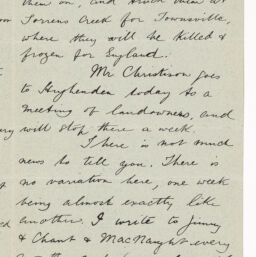 them on, and truck them at
Torrens Creek for Townsville,
where they will be killed &
frozen for England.
Mr Christison goes
to Hughenden today to a
meeting of landowners, and
will stop there a week.
There is not much
news to tell you. There is
no variation here, one week
being almost exactly like
another. I write to Jinny
& Chant & MacNaught every